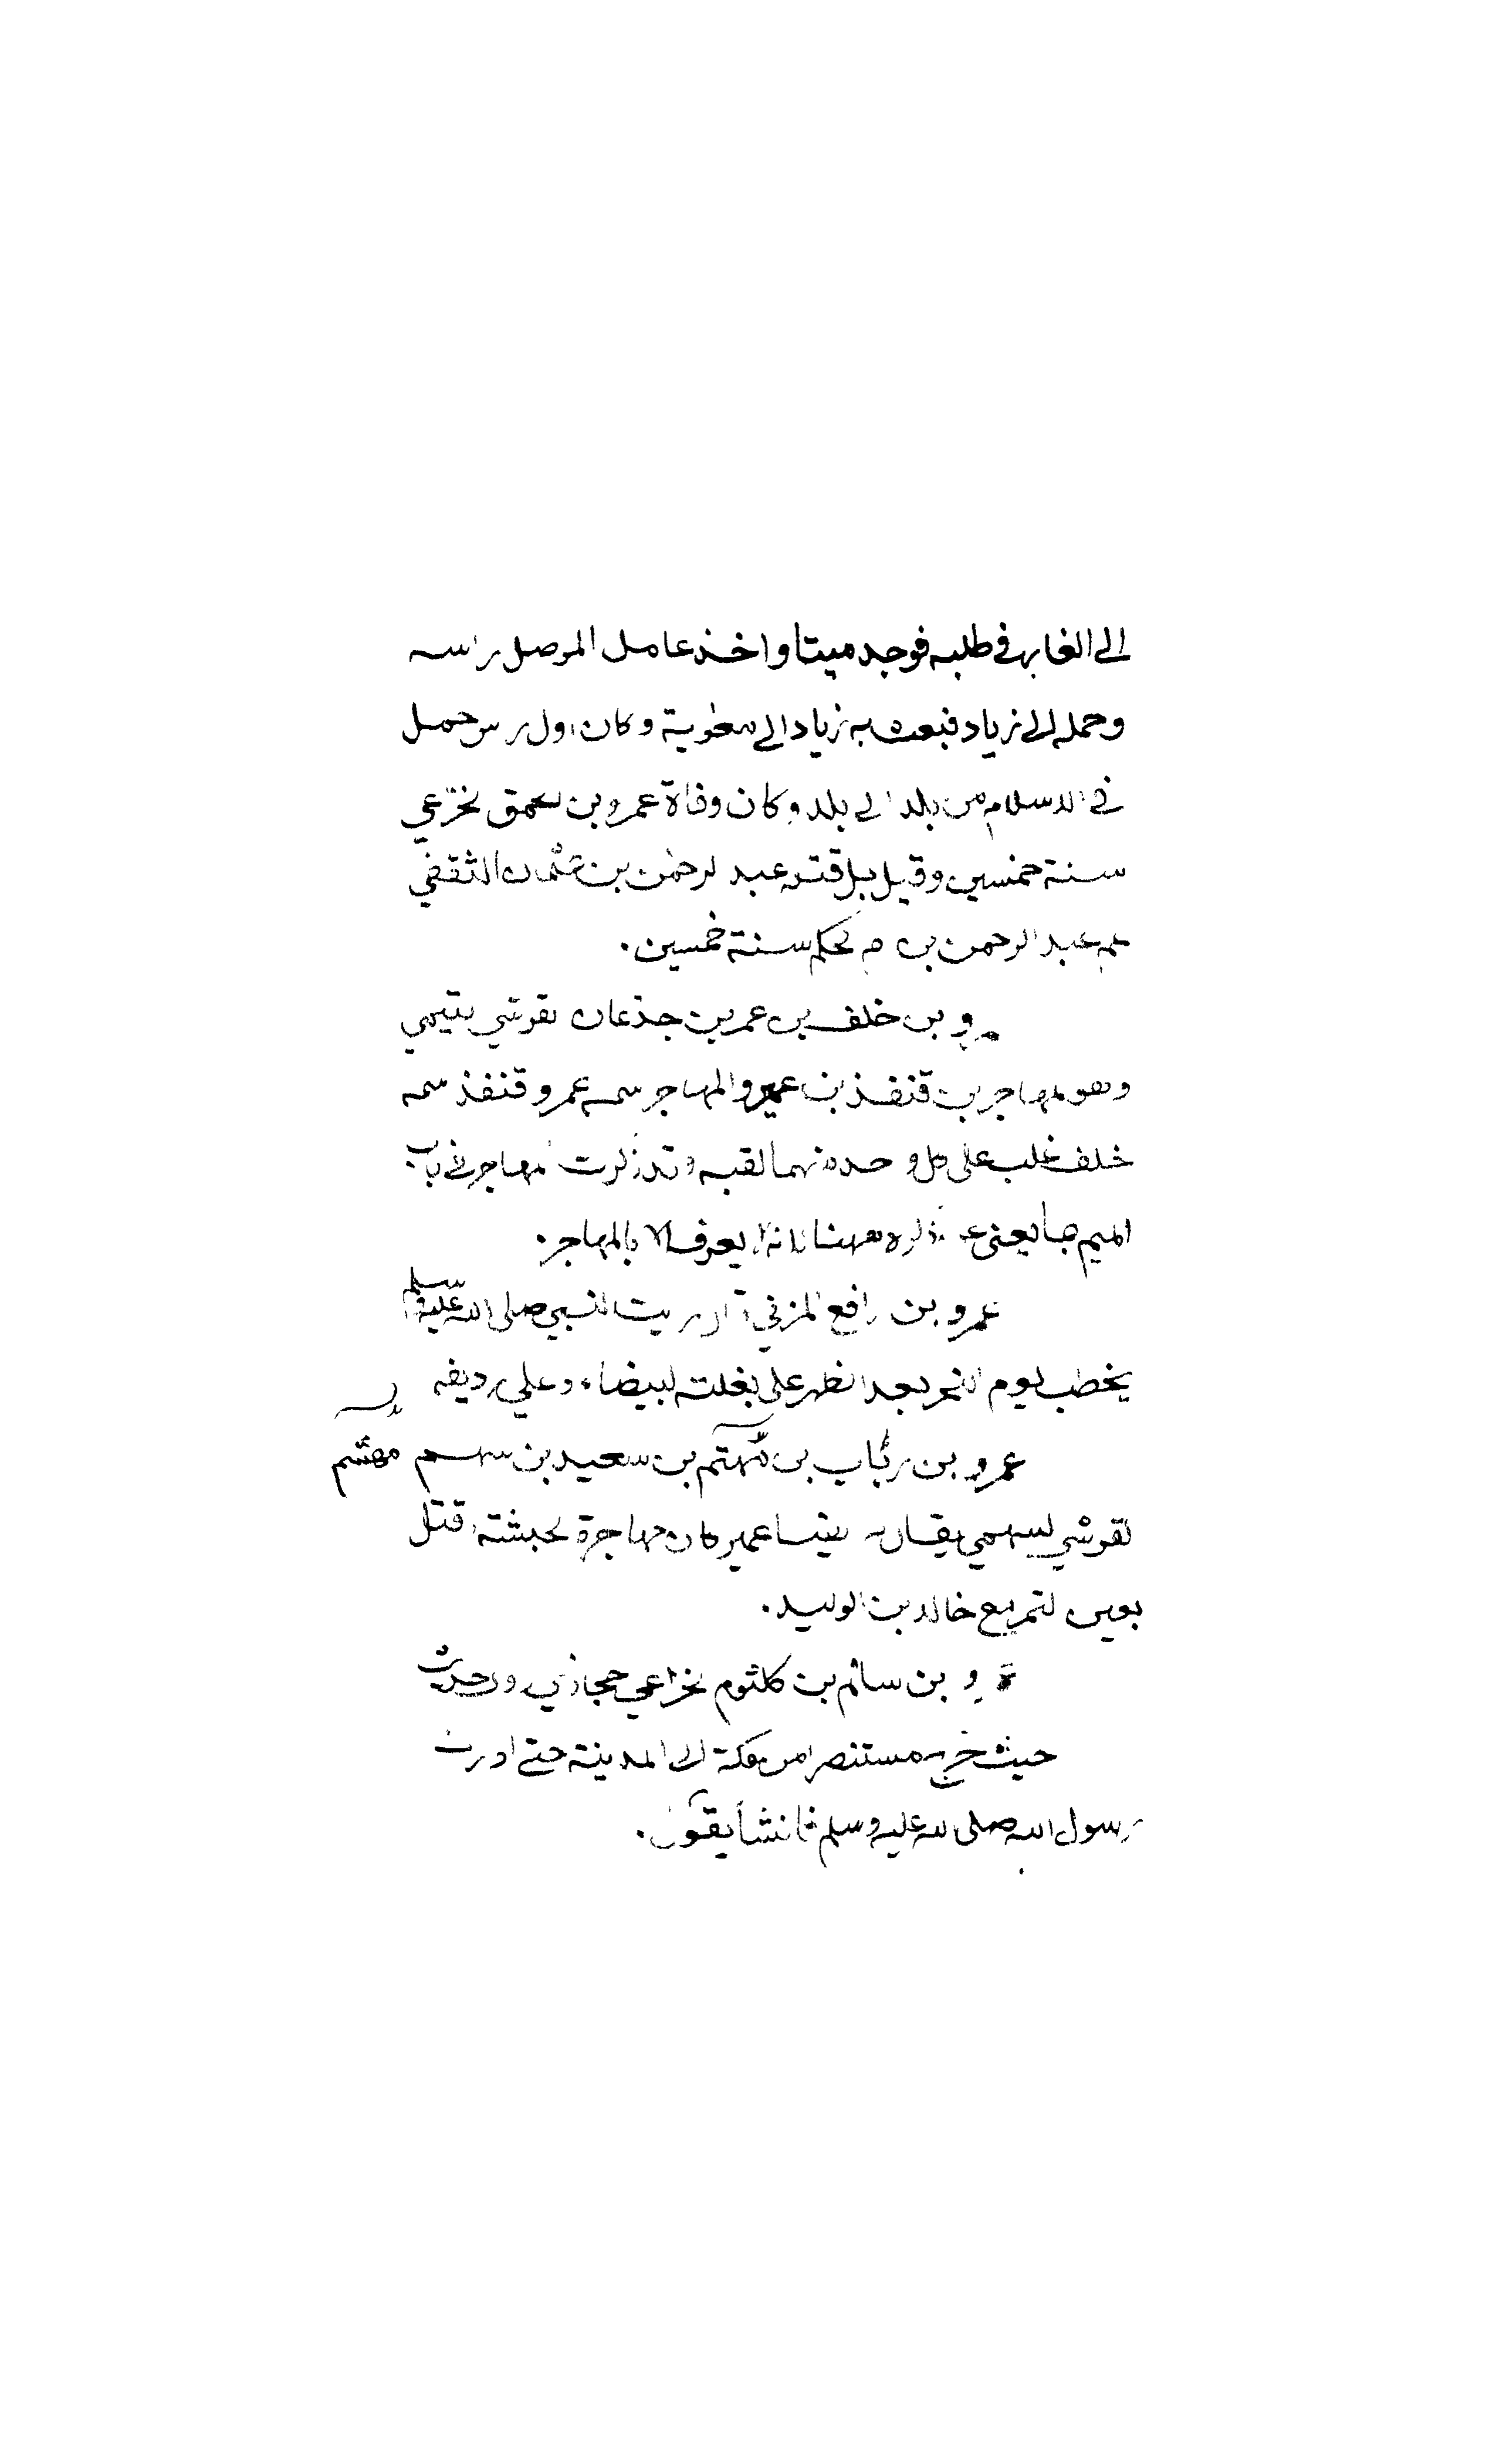 الى الغار في طلبه فوجد ميتا واخذ عامل الموصل راسه
وحمله الى زياد فبعث به زياد الى معٰوية وكان اول رس حمل
في الاسلام من بلد الى بلد وكان وفاة عمرو بن لحمق لخزعي
سنة خمسين وقيل بل قتله عبد لرحمٰن بن عثمان الثقفي
عم عبد الرحمن بن م لحكم سنة خمسين.
و بن خلف بن عمر بن جذعان لقرشي لتيمي
وهو لمهاجر بن قنفذ بن عمير والمهاجر سمه عمرو قنفذ سمه
خلف غلب على كل وحد منهما لقبه وقد ذكرت لمهاجر في باب
الميم بما يغني عن ذكره ههنا لانه لا يعرف الا بالمهاجر.
عمرو بن رافع المزني قال ريت النبي صلى الله عليه وسلم
يخطب يوم النحر بعد الظهر على بغلته لبيضاء وعلي رديفه
عمرو بن رئاب بن مهشم بن سعيد بن سهم مهشم
لقرشي لسهمي يقال له يضا عمير كان مهاجرة لحبشة قتل
بعين لتمر مع خالد بن الوليد.
و بن سالم بن كلثوم لخزاعي حجازي روحديث
حيث خرج مستنصرا من مكة الى المدينة حتى ادرك
رسول الله صلى لله عليه وسلم فانشأ يقول.